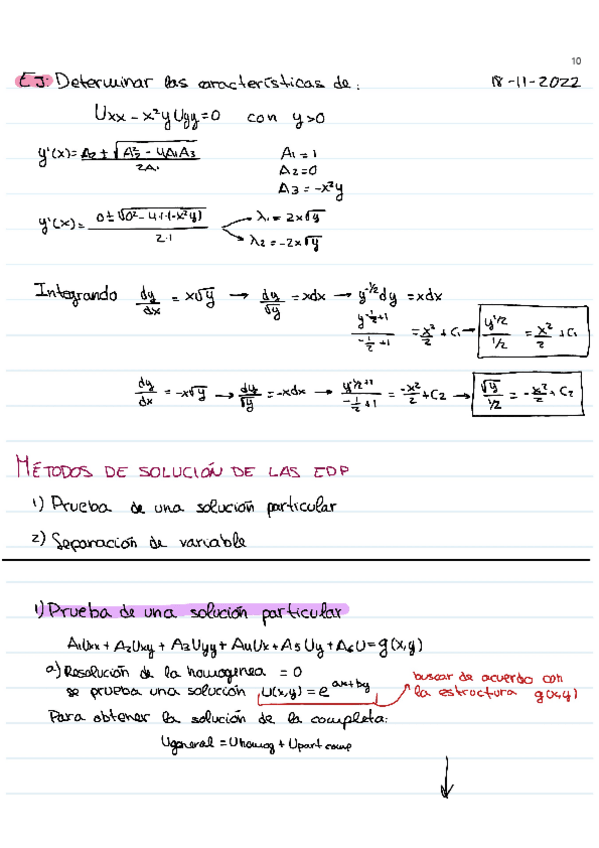 10
EJ: Determinar las características de: 18-11-2022
Uxx - x²y Uyy = 0 con y>0
y'(x) = A2 ± √(A2² - 4A1A3) / 2A1
A1 = 1
A2 = 0
A3 = -x²y
y'(x) = 0 ± √(0² - 4·1·(-x²y)) / 2·1
λ1 = 2x√y
λ2 = -2x√y
Integrando dy/dx = x√y → dy/√y = xdx → y^(-1/2) dy = xdx
y^(-1/2+1) / (-1/2+1) = x²/2 + C1 → y^(1/2) / 1/2 = x²/2 + C1
dy/dx = -x√y → dy/√y = -xdx → y^(1/2+1) / (-1/2+1) = -x²/2 + C2 → √y / 1/2 = -x²/2 + C2
MÉTODOS DE SOLUCIÓN DE LAS EDP
1) Prueba de una solución particular
2) Separación de variable
1) Prueba de una solución particular
A1Uxx + A2Uxy + A3Uyy + A4Ux + A5Uy + A6U = g(x,y)
a) Resolución de la homogenea = 0
se prueba una solución U(x,y) = e^(ax+by)
buscar de acuerdo con
la estructura g(x,y)
Para obtener la solución de la completa:
Ugeneral = Uhomog + Upart comp